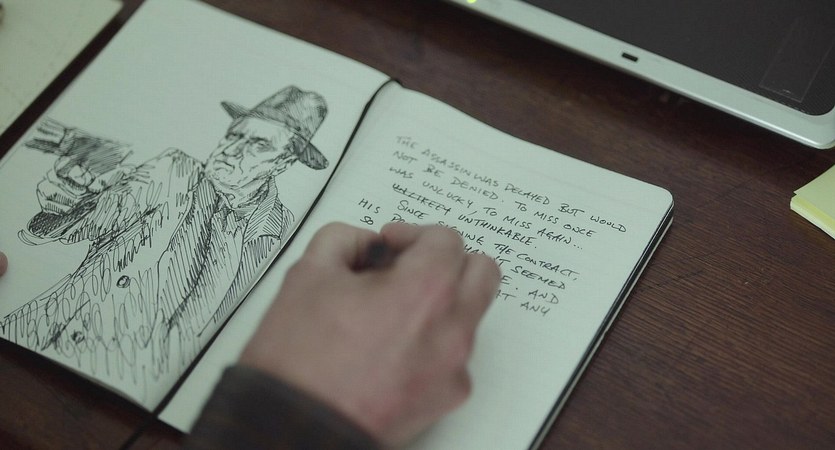 THE ASSASSIN WAS DELAYED BUT WOULD
NOT BE DENIED. TO MISS ONCE
WAS UNLUCKY. TO MISS AGAIN...
UNTHINKABLE.
SINCE SIGNING THE CONTRACT,
HIS SEEMED
SO AND
AT ANY